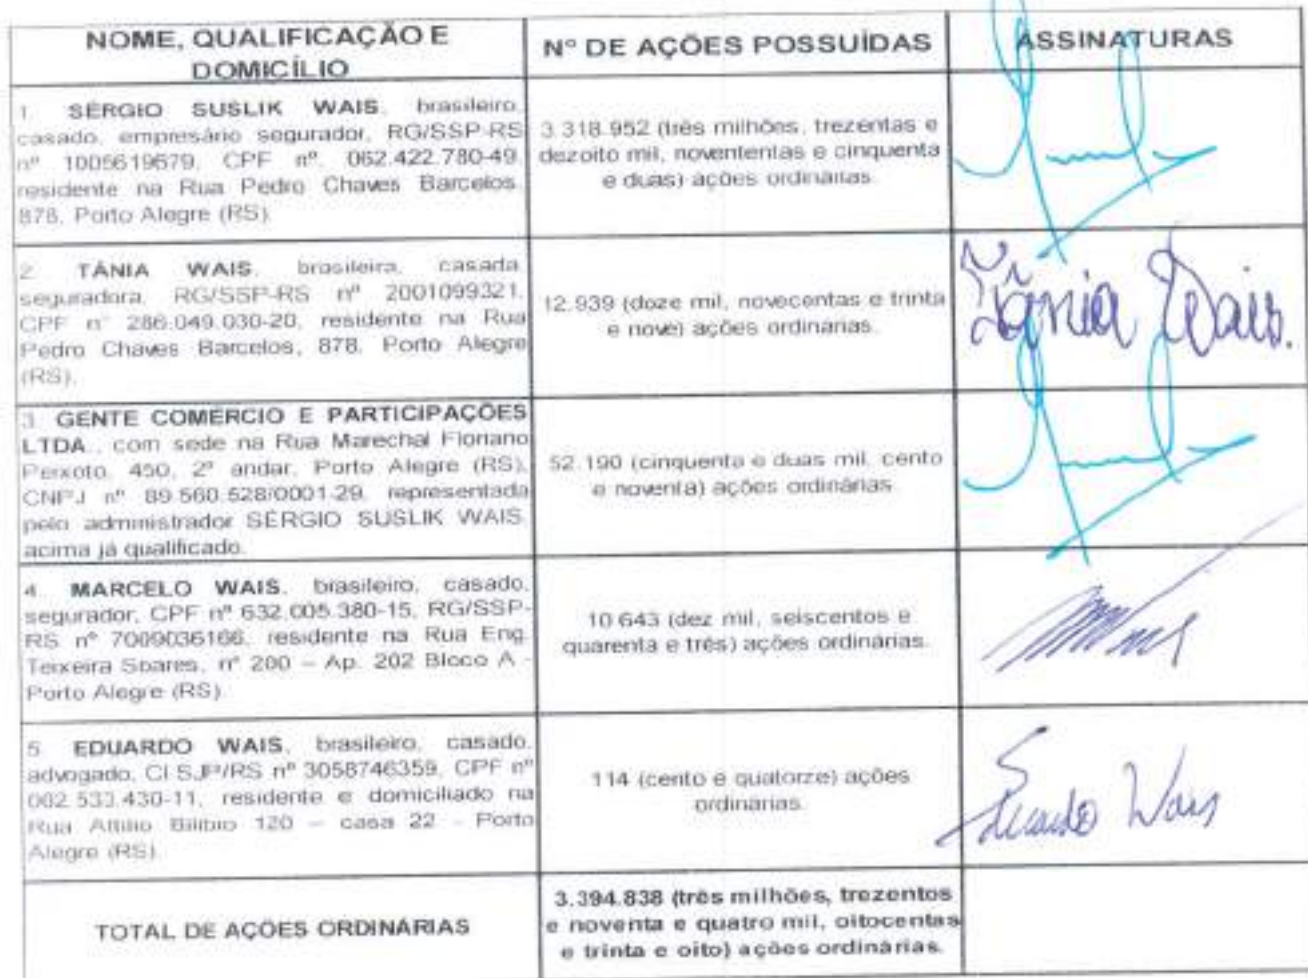 NOME, QUALIFICAÇÃO E
DOMICÍLIO
Nº DE AÇÕES POSSUÍDAS
ASSINATURAS
1. SÉRGIO SUSLIK WAIS, brasileiro,
casado, empresário segurador, RG/SSP-RS
nº 1005619679, CPF nº. 062.422.780-49,
residente na Rua Pedro Chaves Barcelos,
878, Porto Alegre (RS).
3.318.952 (três milhões, trezentas e
dezoito mil, novententas e cinquenta
e duas) ações ordinárias.
2. TÂNIA WAIS, brasileira, casada,
seguradora, RG/SSP-RS nº 2001099321,
CPF nº 286.049.030-20, residente na Rua
Pedro Chaves Barcelos, 878, Porto Alegre
(RS).
12.939 (doze mil, novecentas e trinta
e nove) ações ordinárias.
Tânia Wais.
3. GENTE COMÉRCIO E PARTICIPAÇÕES
LTDA., com sede na Rua Marechal Floriano
Peixoto, 450, 2º andar, Porto Alegre (RS),
CNPJ nº 89.560.528/0001-29, representada
pelo administrador SÉRGIO SUSLIK WAIS,
acima já qualificado.
52.190 (cinquenta e duas mil, cento
e noventa) ações ordinárias.
4. MARCELO WAIS, brasileiro, casado,
segurador, CPF nº 632.005.380-15, RG/SSP-
RS nº 7009036166, residente na Rua Eng.
Teixeira Soares, nº 200 – Ap. 202 Bloco A -
Porto Alegre (RS).
10.643 (dez mil, seiscentos e
quarenta e três) ações ordinárias.
5. EDUARDO WAIS, brasileiro, casado,
advogado, CI SJP/RS nº 3058746359, CPF nº
002.533.430-11, residente e domiciliado na
Rua Attilio Bilibio 120 – casa 22 - Porto
Alegre (RS).
114 (cento e quatorze) ações
ordinárias.
Eduardo Wais
TOTAL DE AÇÕES ORDINÁRIAS
3.394.838 (três milhões, trezentos
e noventa e quatro mil, oitocentas
e trinta e oito) ações ordinárias.